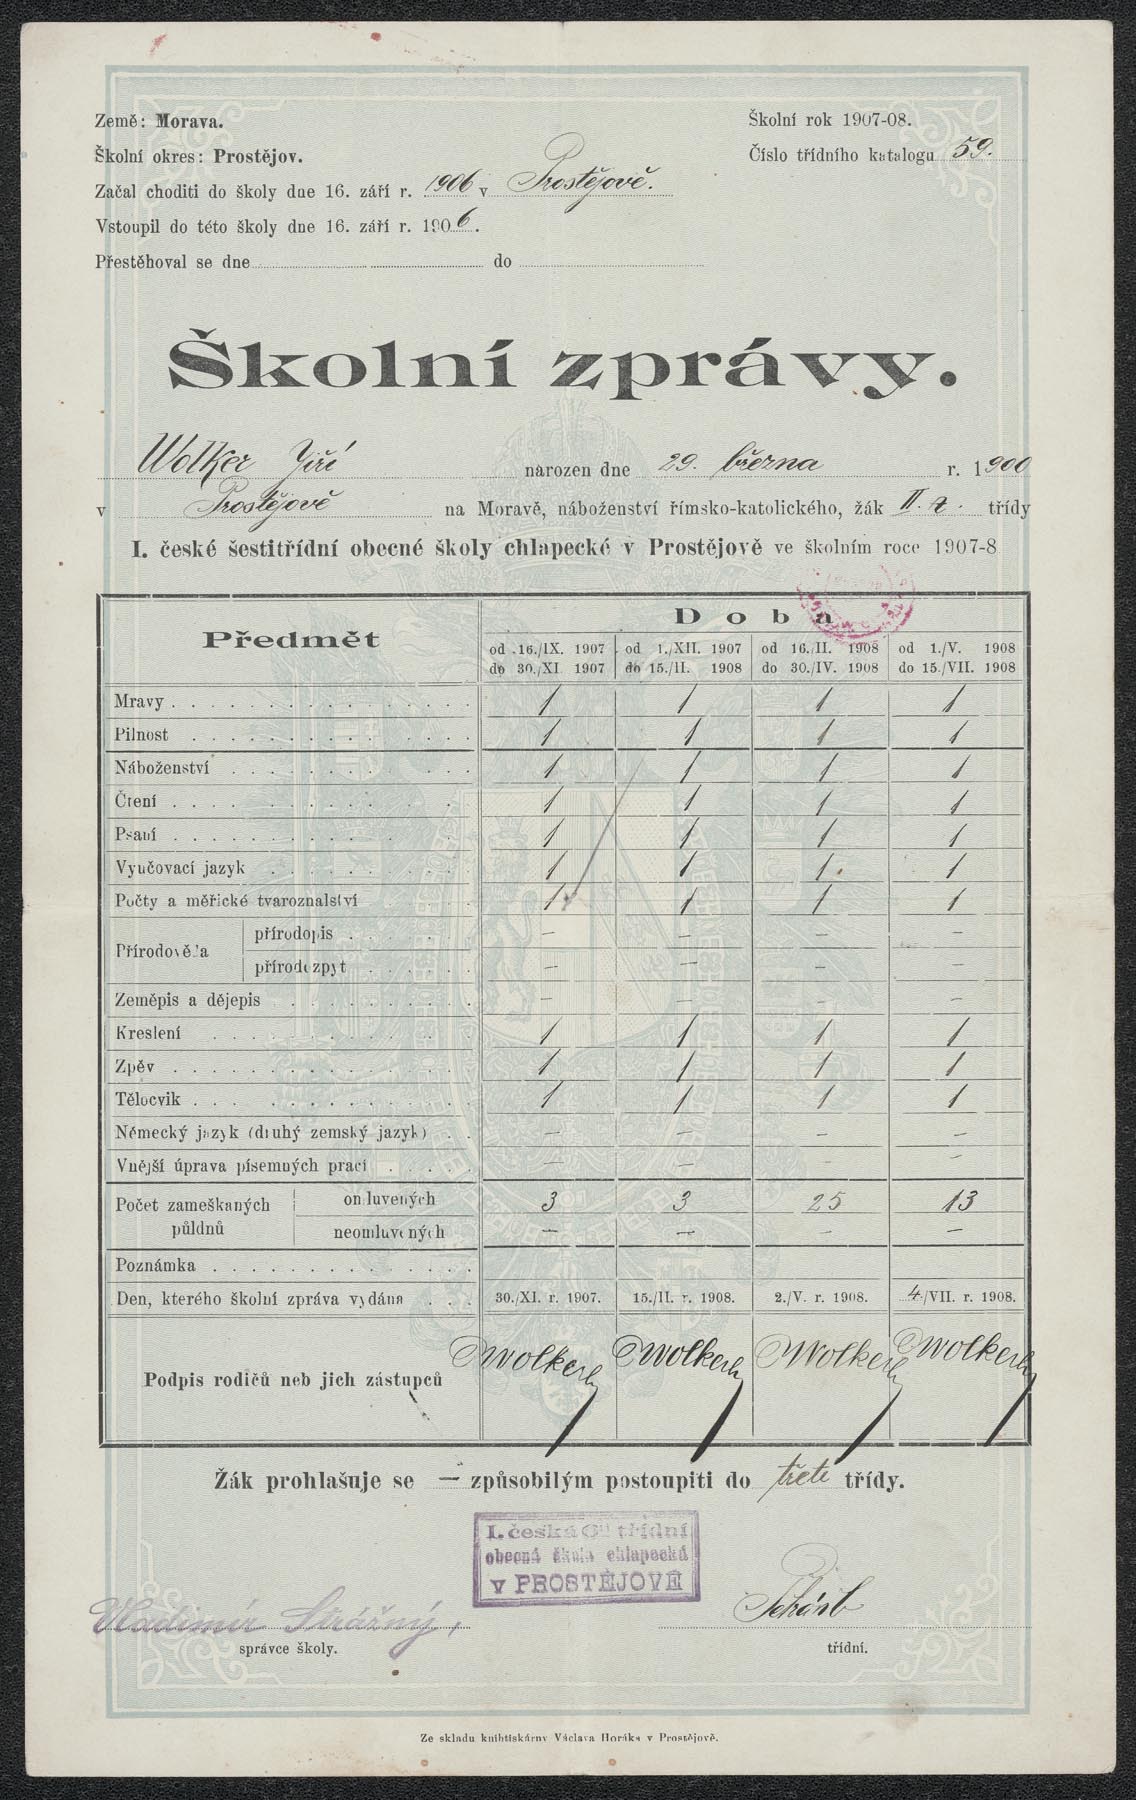 Země: Morava.
Školní rok 1907-08.
Školní okres: Prostějov.
Číslo třídního katalogu 59.
Začal choditi do školy dne 16. září r. 1906 v Prostějově.
Vstoupil do této školy dne 16. září r. 1906.
Přestěhoval se dne do
Školní zprávy.
Wolker Jiří narozen dne 29. března r. 1900
v Prostějově na Moravě, náboženství římsko-katolického, žák II. a. třídy
I. české šestitřídní obecné školy chlapecké v Prostějově ve školním roce 1907-8
Předmět Doba
od 16./IX. 1907 od 1./XII. 1907 od 16./II. 1908 od 1./V. 1908
do 30./XI. 1907 do 15./II. 1908 do 30./IV. 1908 do 15./VII. 1908
Mravy 1 1 1 1
Pilnost 1 1 1 1
Náboženství 1 1 1 1
Čtení 1 1 1 1
Psaní 1 1 1 1
Vyučovací jazyk 1 1 1. 1
Počty a měřické tvaroznalství 1 1 1 1
Přírodověda přírodopis – – – –
přírodozpyt – – – –
Zeměpis a dějepis – – – –
Kreslení 1 1 1 1
Zpěv 1 1 1 1
Tělocvik 1 1 1 1
Německý jazyk (druhý zemský jazyk) – – – –
Vnější úprava písemných prací – – – –
Počet zameškaných půldnů omluvených 3 3 25 13
neomluvených – – – –
Poznámka
Den, kterého školní zpráva vydána 30./XI. r. 1907. 15./II. r. 1908. 2./V. r. 1908. 4./VII. r. 1908.
Podpis rodičů neb jich zástupců Wolker Wolker Wolker Wolker
Žák prohlašuje se — způsobilým postoupiti do třetí třídy.
I. česká 6ti třídní
obecná škola chlapecká
V PROSTĚJOVĚ
Vladimír Strážný,
správce školy.
třídní.
Ze skladu knihtiskárny Václava Horáka v Prostějově.